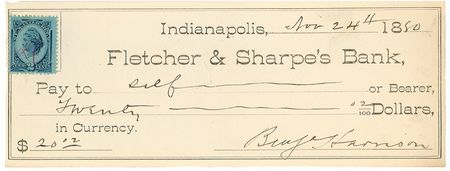 Indianapolis, Nov 24th 1880
Fletcher & Sharpe's Bank,
Pay to self or Bearer,
Twenty 00/100 Dollars,
in Currency.
$ 20.00 Benj Harrison